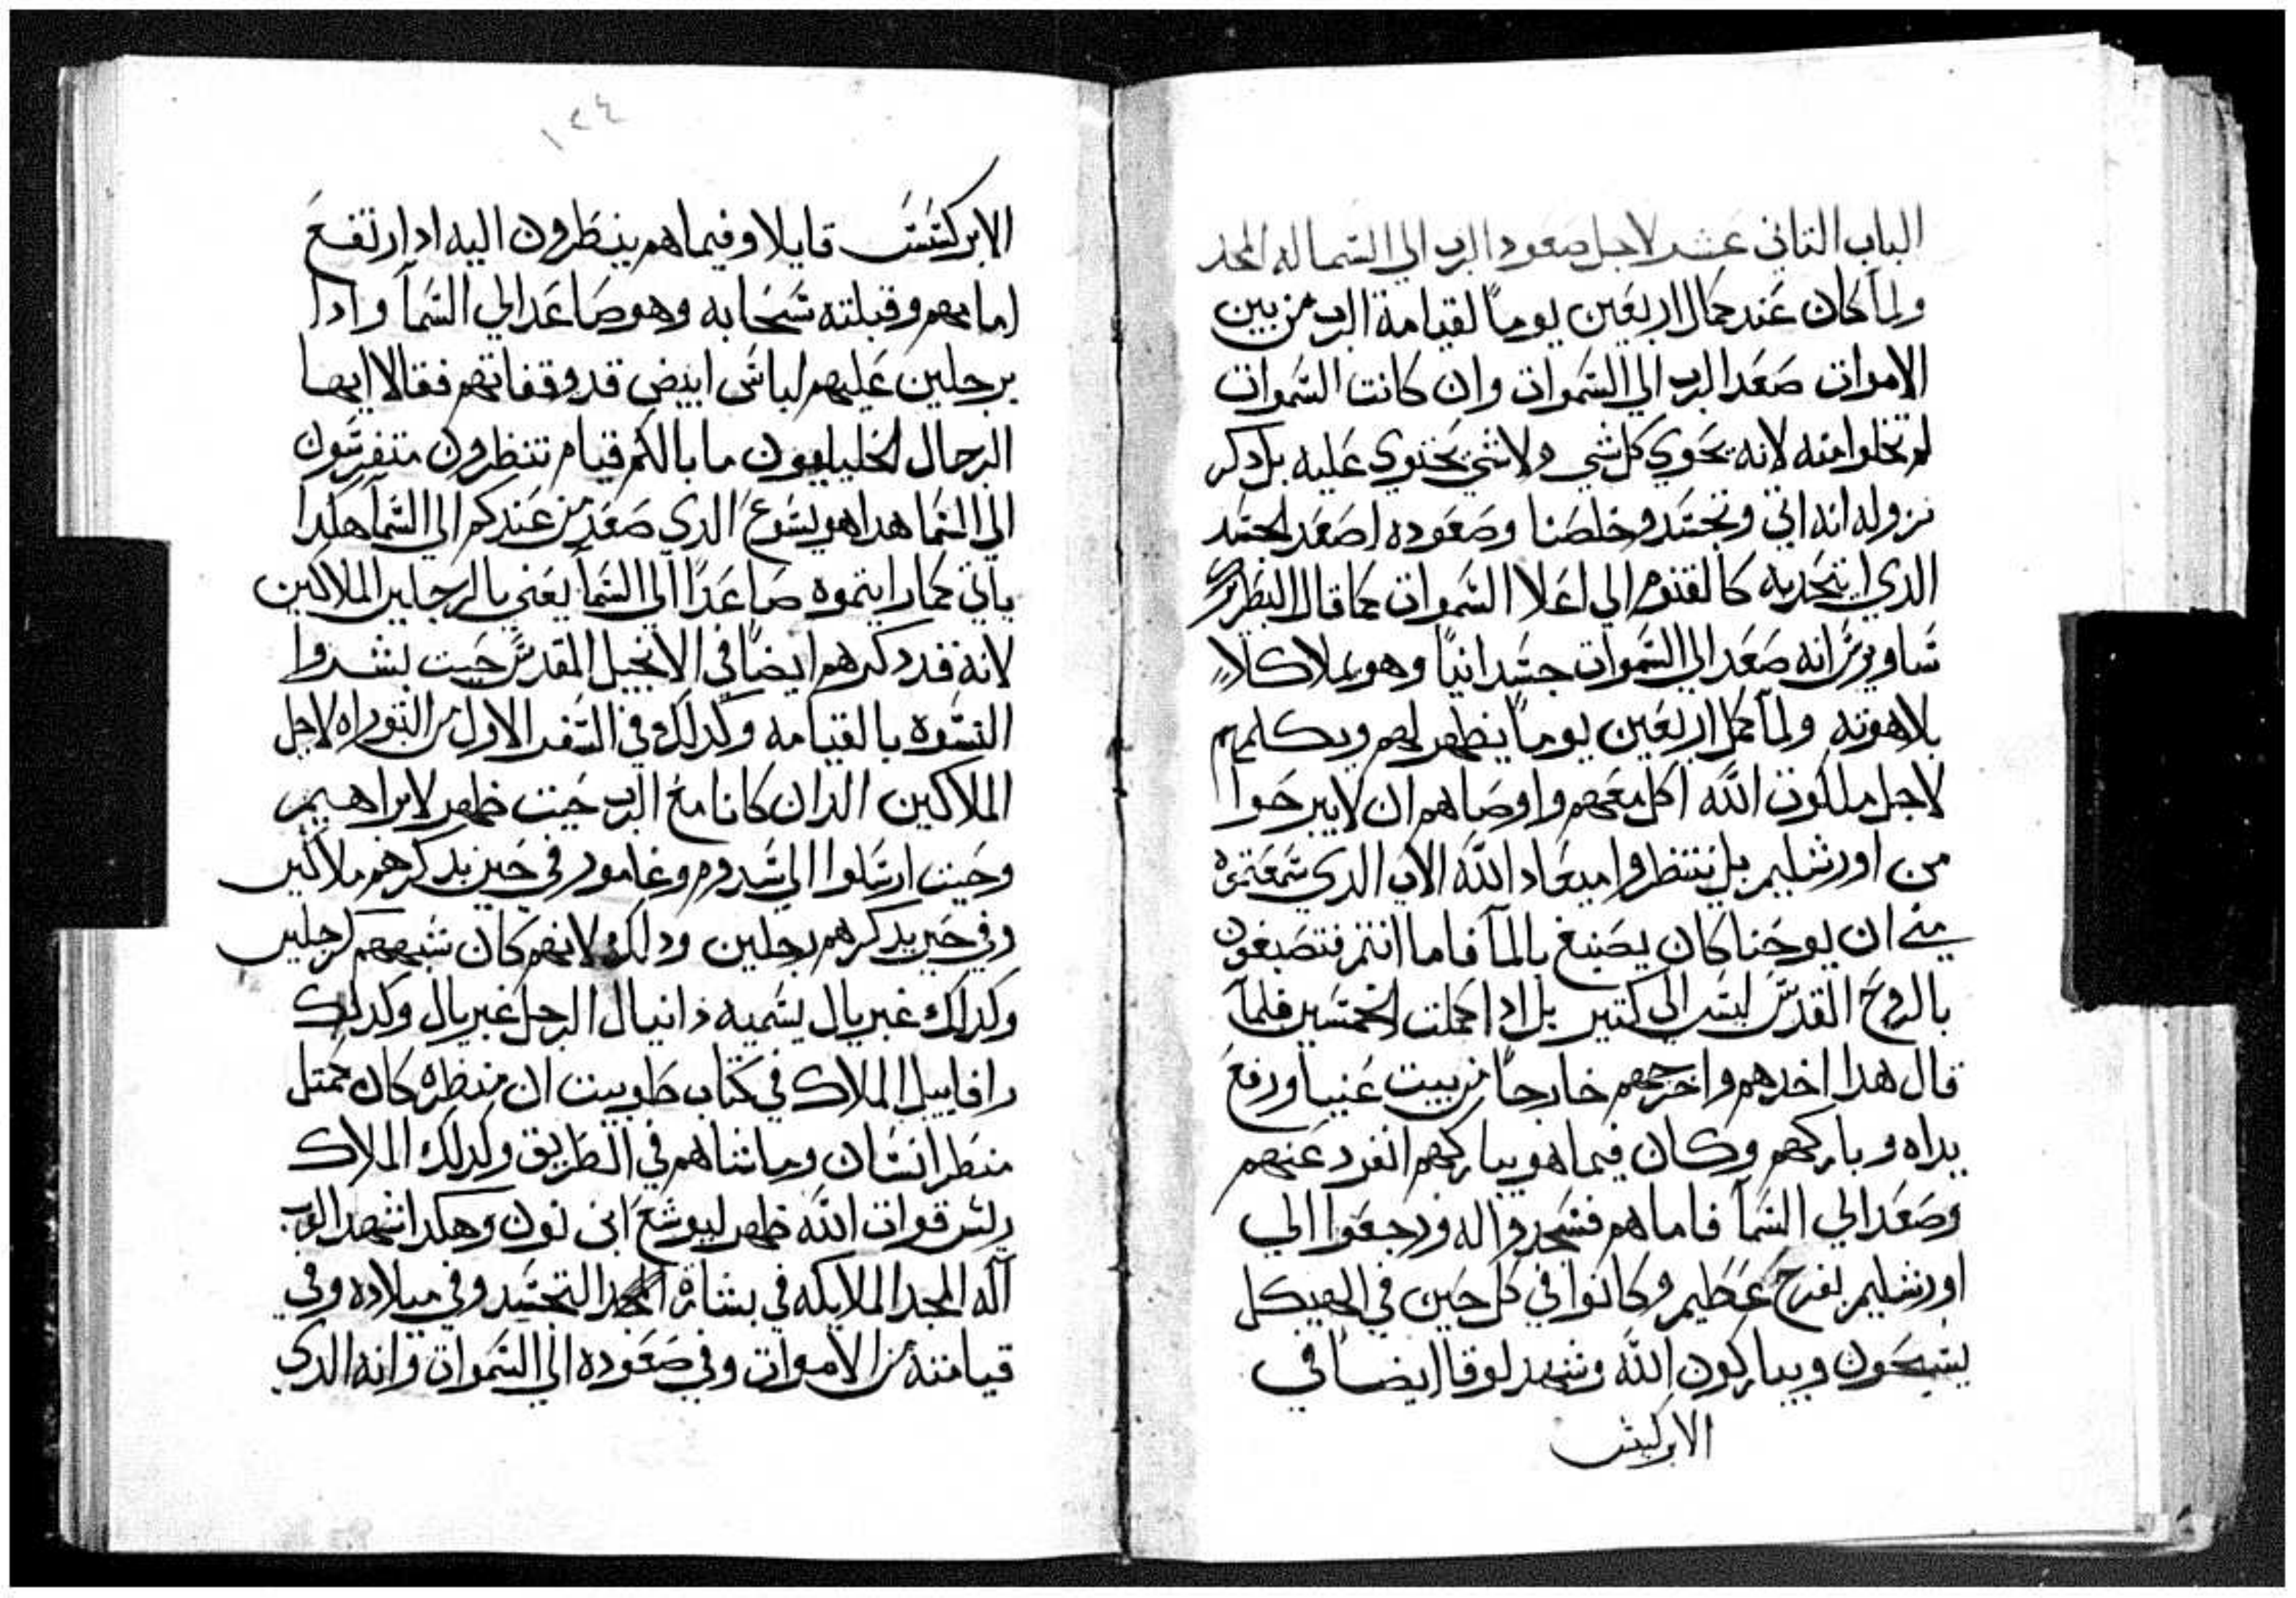 الباب التاني عشر لاجل صعود الرب الي السما له المجد
ولما كان عند كمال اربعين يوماً لقيامة الرب من بين
الاموات صعد الرب الي السموات وان كانت السموات
لم تخلوا منه لانه يحوي كل شي ولا شي يحتوي عليه بل دكر
نزوله انه اتي وتجسد وخلصنا وصعوده اصعد الجسد
الدي اتحد به كالقنوم الي اعلا السموات كما قال البطريرك
ساويرس انه صعد الي السموات جسدانياً وهو يملا كلاً
بلاهوته ولما كمل اربعين يوماً يظهر لهم ويكلمهم
لاجل ملكوت الله اكل معهم واوصاهم ان لا يبرحوا
من اورشليم بل ينتظروا ميعاد الله الاب الدي سمعتموه
مني ان يوحنا كان يصبغ بالمآ فاما انتم فتصبغون
بالروح القدس ليس الي كتير بل ادا كملت الخمسين فلما
قال هدا اخدهم واخرجهم خارجاً من بيت عنيا ورفع
يداه وباركهم وكان فيما هو يباركهم انفرد عنهم
وصعد الي السمآ فاما هم فسجدوا له ورجعوا الي
اورشليم بفرح عظيم وكانوا في كل حين في الهيكل
يسبحون ويباركون الله وشهد لوقا ايضاً في
الابركسس
١٢٤
الابركسس قايلا وفيما هم ينظرون اليه اد ارتفع
امامهم وقبلته سحابه وهو صاعد الي السمآ وادا
برجلين عليهم لباس ابيض قد وقفا بهم فقالا ايها
الرجال الجليليون ما بالكم قيام تنظرون متفرسون
الي السما هدا هو يسوع الدي صعد من عندكم الي السمآ هكدا
ياتي كما رايتموه صاعداً الي السمآ يعني بالرجلين الملاكين
لانه قد دكرهم ايضاً في الانجيل المقدس حيت بشروا
النسوة بالقيامه وكدلك في السفر الاول من التوراه لاجل
الملاكين الدان كانا مع الرب حيت ظهر لابراهيم
وحيت ارسلوا الي سدوم وغامور في حين يدكرهم ملاكين
وفي حين يدكرهم رجلين ودلك لانهم كان شبههم كرجلين
وكدلك غبريال يسميه دانيال الرجل غبريال وكدلك
رافاييل الملاك في كتاب طوبيت ان منظره كان كمتل
منظر انسان وماشاهم في الطريق وكدلك الملاك
ريس قوات الله ظهر ليوشع ابن نون وهكدا شهد الرب
اله المجد الملايكه في بشارة التجسد وفي ميلاده وفي
قيامته من الاموات وفي صعوده الي السموات وانه الدي